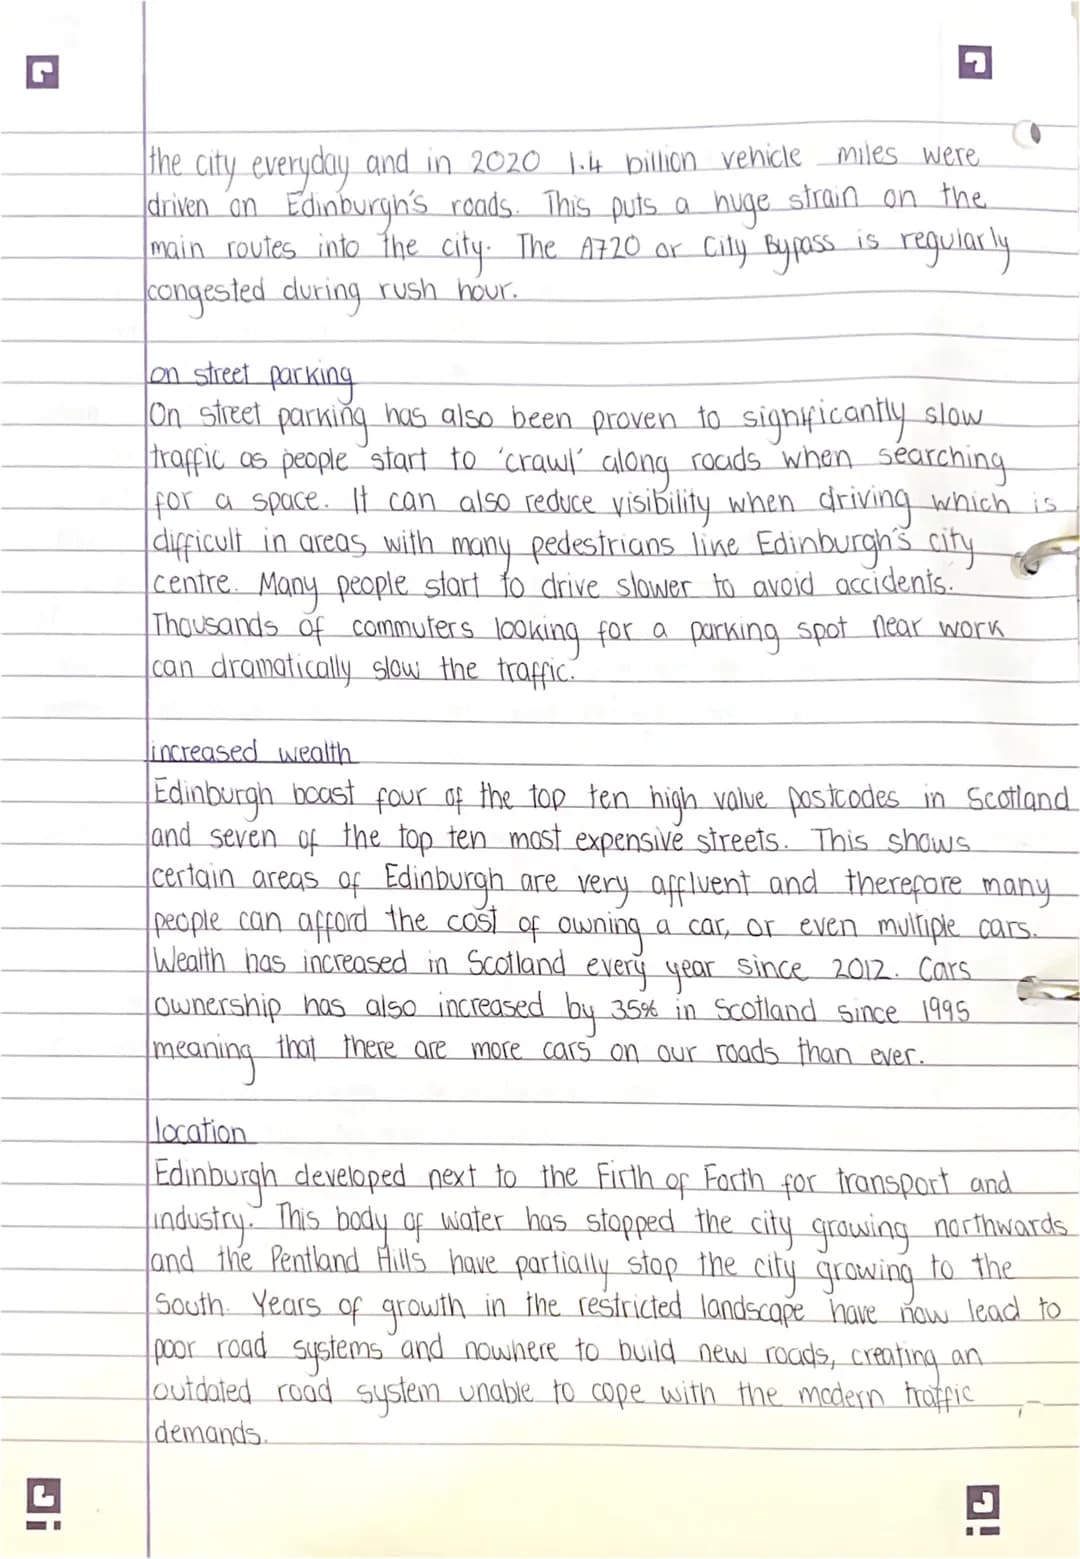 the city everyday and in 2020 1.4 billion vehicle miles were
driven on Edinburgh's roads. This puts a huge strain on the
main routes into the city. The A720 or City Bypass is regularly
congested during rush hour.
on street parking
On street parking has also been proven to significantly slow
traffic as people start to 'crawl' along roads when searching
for a space. It can also reduce visibility when driving which is
difficult in areas with many pedestrians like Edinburgh's city
centre. Many people start to drive slower to avoid accidents.
Thousands of commuters looking for a parking spot near work
can dramatically slow the traffic.
increased wealth
Edinburgh boast four of the top ten high value postcodes in Scotland
and seven of the top ten most expensive streets. This shows
certain areas of Edinburgh are very affluent and therefore many
people can afford the cost of owning a car, or even multiple cars.
Wealth has increased in Scotland every year since 2012. Cars
ownership has also increased by 35% in Scotland since 1995
meaning that there are more cars on our roads than ever.
location
Edinburgh developed next to the Firth of Forth for transport and
industry. This body of water has stopped the city growing northwards
and the Pentland Hills have partially stop the city growing to the
South. Years of growth in the restricted landscape have now lead to
poor road systems and nowhere to build new roads, creating an
outdated road system unable to cope with the modern traffic
demands.